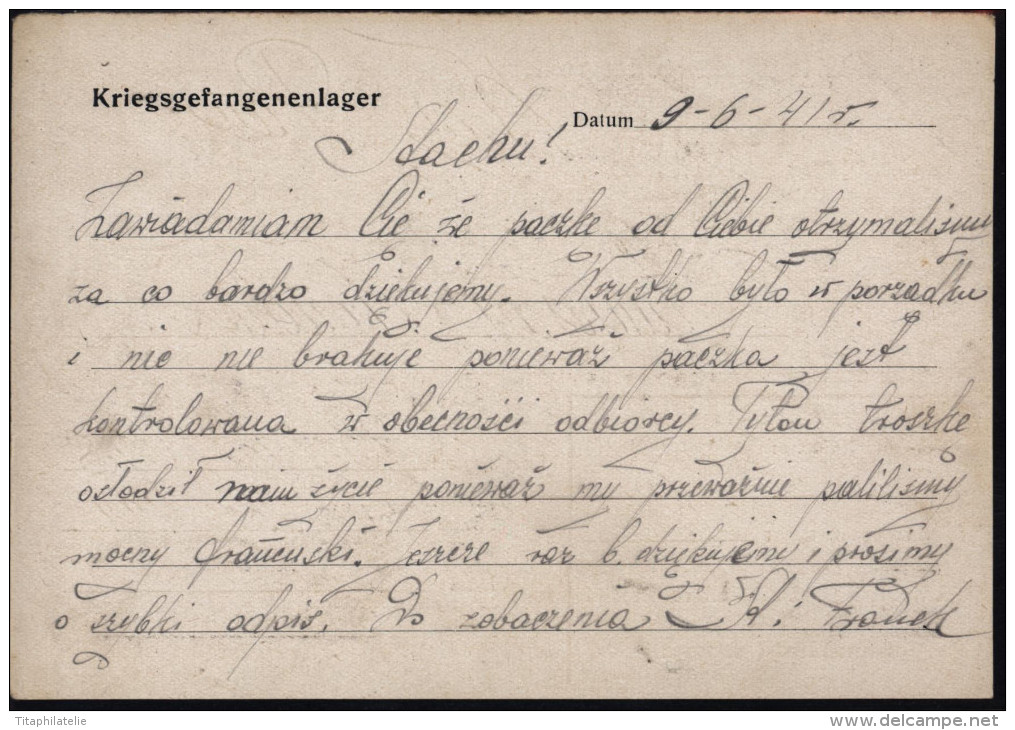 Kriegsgefangenenlager
Datum 9-6-41 r.
Stachu!
Zawiadamiam Cię że paczkę od Ciebie otrzymaliśmy
za co bardzo dziękujemy. Wszystko było w porządku
i nic nie brakuje ponieważ paczka jest
kontrolowana w obecności odbiorcy. Tytoń troszkę
osłodził nam życie ponieważ my przeważnie paliliśmy
mocny francuski. Jeszcze raz b. dziękujemy i prosimy
o szybki odpis. Do zobaczenia i Franek
Titaphilatelie
www.delcampe.net